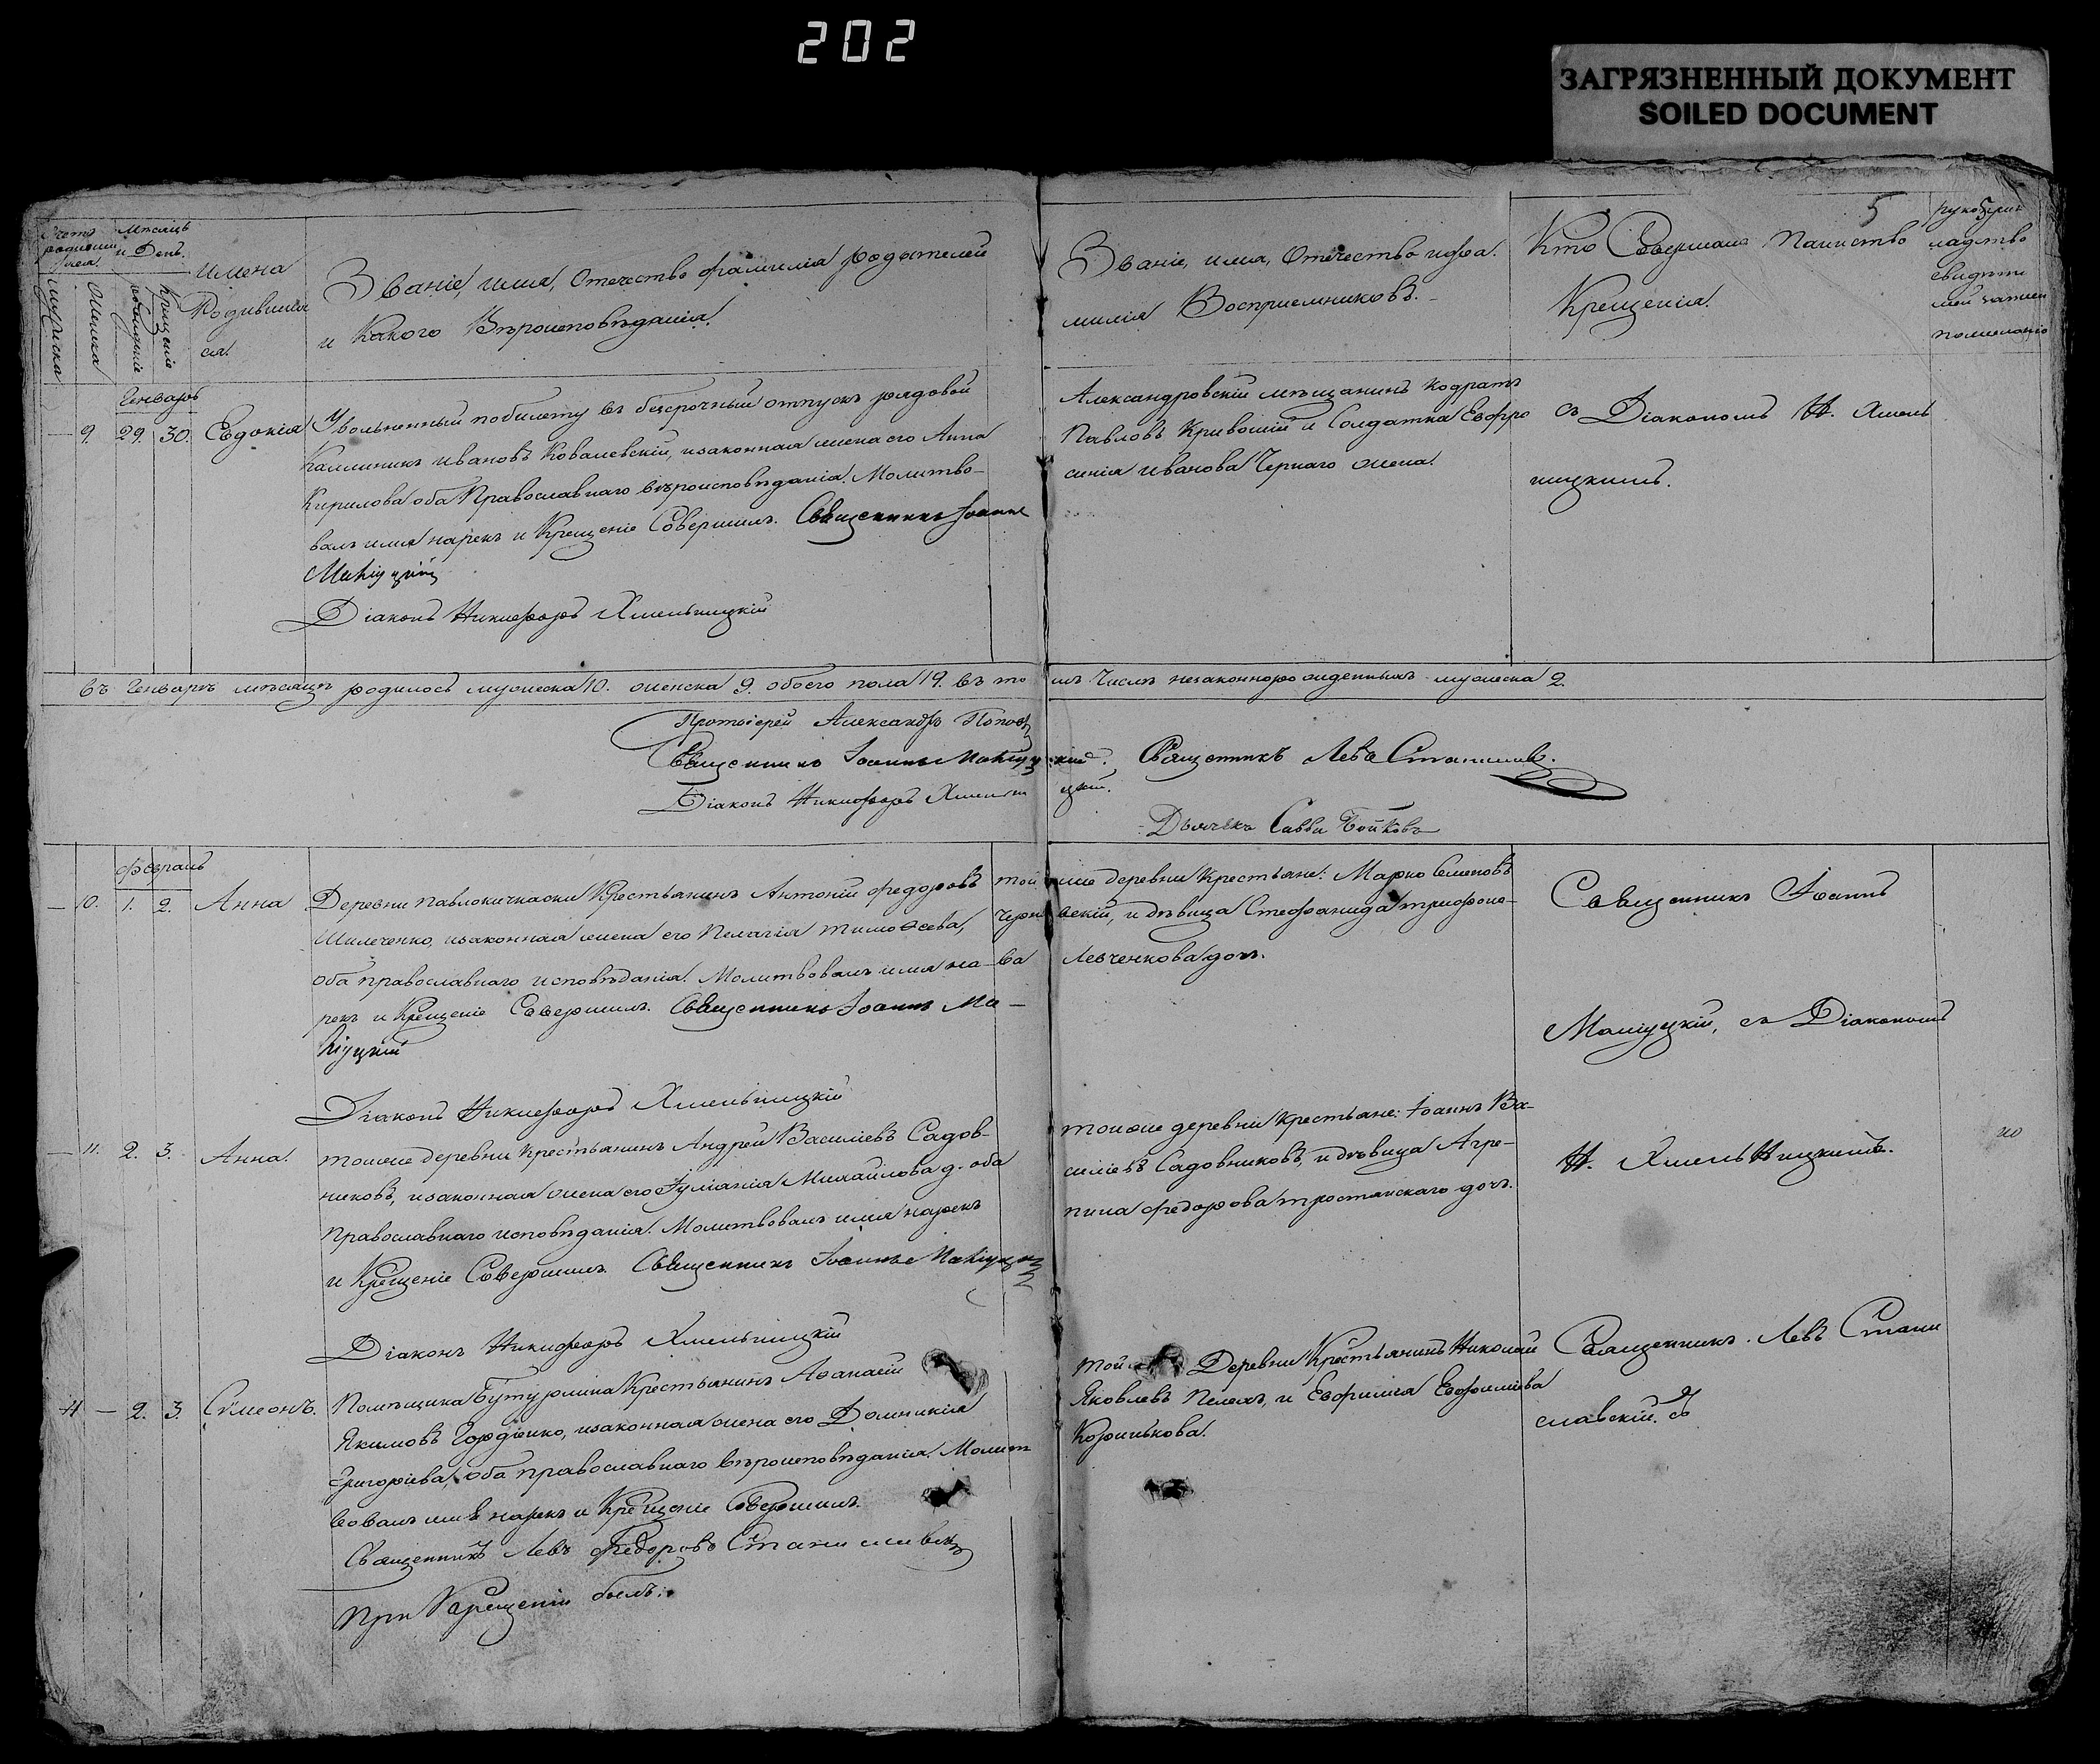 202
ЗАГРЯЗНЕННЫЙ ДОКУМЕНТ
SOILED DOCUMENT
5
Счетъ родившихся.
Мѣсяцъ и День.
мужеска
женска
рожденія
крещенія
Имена Родившихся.
Званіе, имя, отечество фамилія родителей
и Какого Вѣроисповѣданія.
Званіе, имя, Отечество и фа-
милія Воспріемниковъ.
Кто Совершалъ Таинство
Крещенія.
Генварь
9. 29. 30. Евдокія
Увольненный побилету въ безсрочный отпускъ рядовой
Каллиникъ Ивановъ Ковалевскій, изаконная жена его Анна
Кирилова оба Православнаго вѣроисповѣданія. Молитво-
валъ имя нарекъ и Крещеніе Совершилъ. Священникъ Іоаннъ
Діаконъ Никифоръ Хмельницкій
Александровскій мѣщанинъ Кодратъ
Павловъ Кривошій и Солдатка Евфро
синія Иванова Чернаго жена.
съ Діакономъ Н. Хмель
ницкимъ.
въ Генварѣ мѣсяцѣ родилось мужеска 10. женска 9. обоего пола 19. въ томъ числѣ незаконнорожденныхъ мужеска 2.
Протоіерей Александръ Поповъ
Священникъ Іоаннъ
Священникъ Левъ
Діаконъ Никифоръ Хмельницкій.
Дьячекъ Савва Бойковъ
Февраль
10. 1. 2. Анна
Деревни Павлокичкаски Крестьянинъ Антоній Федоровъ
Шилеченко, изаконная жена его Пелагія Тимоѳеева,
оба православнаго исповѣданія. Молитвовалъ имя на-
рекъ и Крещеніе Совершилъ. Священникъ Іоаннъ
Діаконъ Никифоръ Хмельницкій
тойже деревни Крестьяне: Марко Семеновъ
Чернявскій, и дѣвица Стефанида Трифоно-
ва Левченкова дочь.
Священникъ Іоаннъ
съ Діакономъ
11. 2. 3. Анна.
тойже деревни Крестьянинъ Андрей Василіевъ Садов-
никовъ, изаконная жена его Іуліанія Михайлова д. оба
Православнаго исповѣданія. Молитвовалъ имя нарекъ
и Крещеніе Совершилъ. Священникъ Іоаннъ
Діаконъ Никифоръ Хмельницкій
тойже деревни Крестьяне: Іоаннъ Ва-
силіевъ Садовниковъ, и дѣвица Агре-
пина Федорова тростанскаго дочь.
Н. Хмельницкимъ.
11 — 2. 3. Сѵмеонъ.
Помѣщика Бутурлина Крестьянинъ Аѳанасій
Якимовъ Гордіенко, изаконная жена его Домникія
Григоріева, оба православнаго вѣроисповѣданія. Молит
вовалъ имя нарекъ и Крещеніе Совершилъ.
Священникъ Левъ Федоровъ
При Крещеніи былъ:
той Деревни Крестьянинъ Николай
Яковлевъ Пелехъ, и Евфимія Евфиміева
Священникъ Левъ Стани
славскій. съ